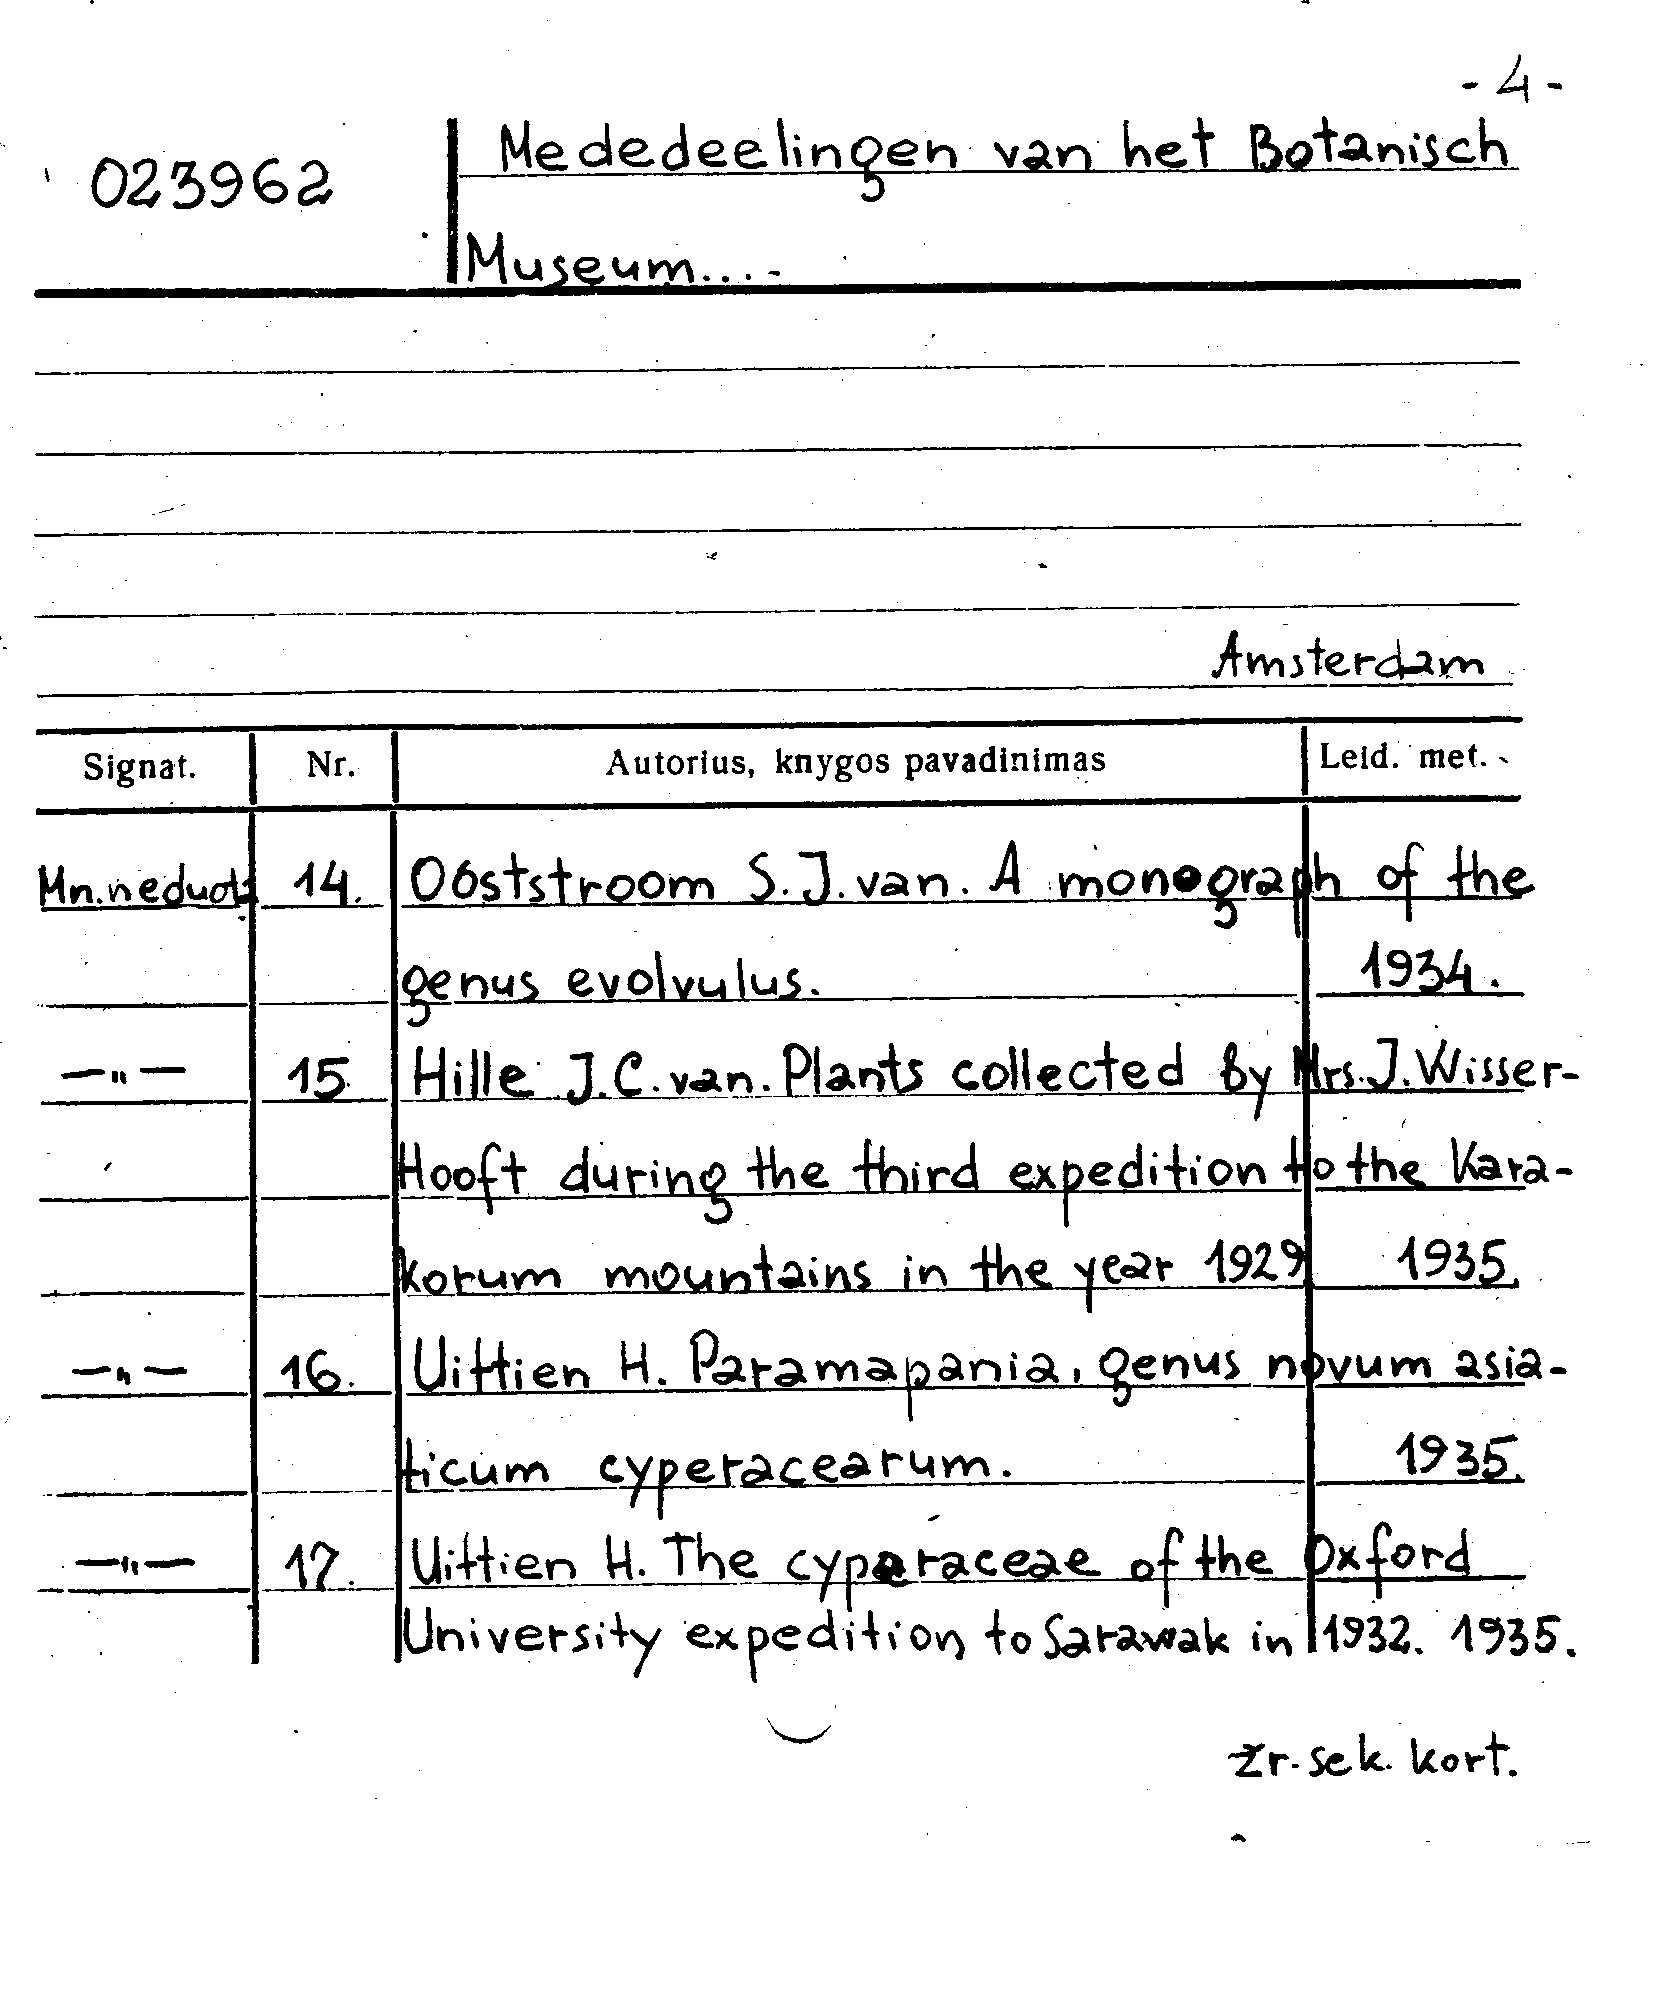 - 4 -
023962 Mededeelingen van het Botanisch
Museum....-
Amsterdam
Signat. Nr. Autorius, knygos pavadinimas Leid. met.
Mn. neduota 14. Ooststroom S. J. van. A monograph of the
genus evolvulus. 1934.
—„— 15 Hille J. C. van. Plants collected by Mrs. J. Wisser-
Hooft during the third expedition to the Kara-
korum mountains in the year 1929 1935.
—„— 16. Uittien H. Paramapania, genus novum asia-
ticum cyperacearum. 1935.
—„— 17. Uittien H. The cyperaceae of the Oxford
University expedition to Sarawak in 1932. 1935.
žr. sek. kort.